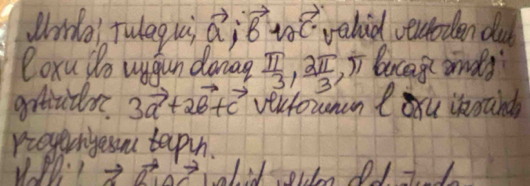 Məsələ, Tutaq ki, a⃗; b⃗ və c⃗ vahid vektorları olub
l oxu ilə uyğun olaraq π/3, 2π/3, π bucağı əmələ
gətirirlər. 3a⃗+2b⃗+c⃗ vektorunun l oxu üzərində
proyeksiyasını tapın.
Həlli: a⃗, b⃗ və c⃗ vahid vektor olduğundan